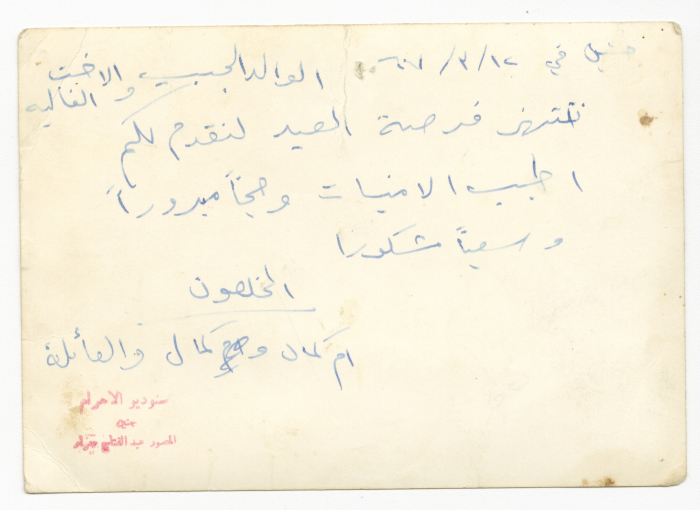 جنين في ١٢/٣/٩٦٧ الوالد الحبيب والاخت الغاليه
ننتهز فرصة العيد لنقدم لكم
اطيب الامنيات وحجاً مبروراً
وسعياً مشكورا
المخلصون
ام كمال و كمال والعائلة
ستوديو الاهرام
جنين
المصور عبد الفتاح